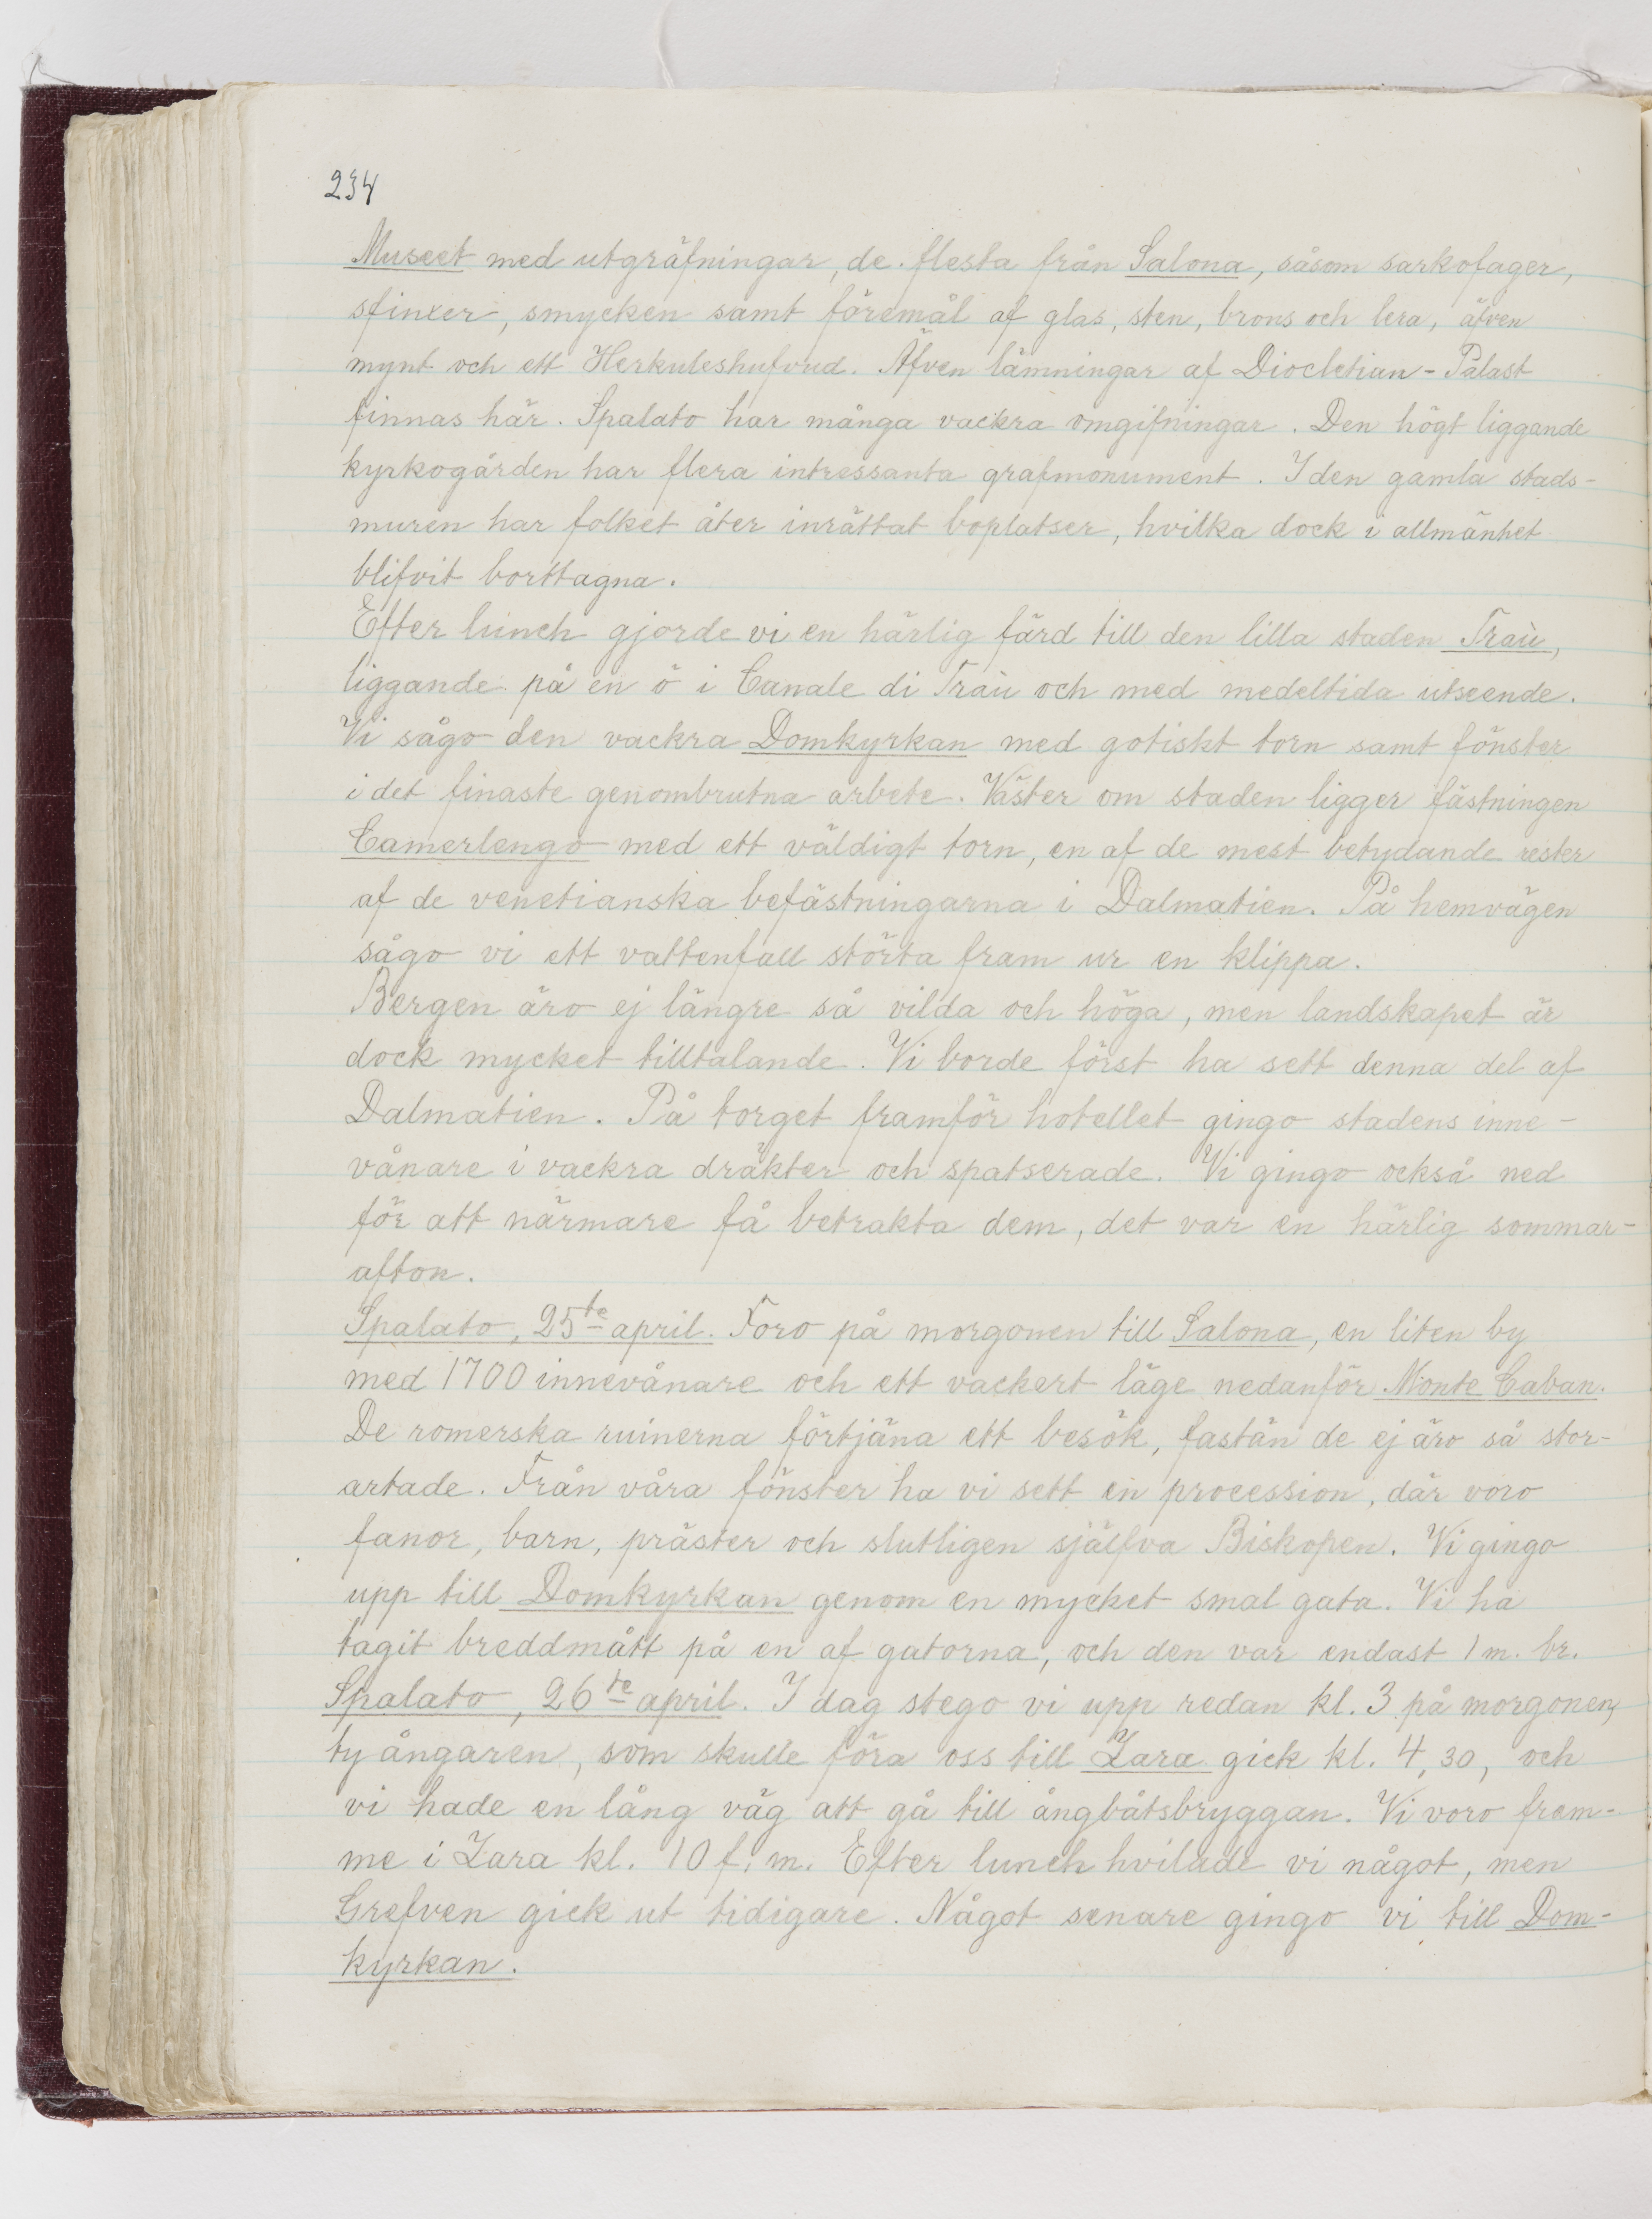 234
Museet med utgräfningar, de flesta från Salona, såsom sarkofager,
sfinxer, smycken samt föremål af glas, sten, brons och lera, äfven
mynt och ett Herkuleshufvud. Äfven lämningar af Diocletian-Palast
finnas här. Spalato har många vackra omgifningar. Den högt liggande
kyrkogården har flera intressanta grafmonument. I den gamla stads-
muren har folket åter inrättat boplatser, hvilka dock i allmänhet
blifvit borttagna.
Efter lunch gjorde vi en härlig färd till den lilla staden Traù,
liggande på en ö i Canale di Traù och med medeltida utseende.
Vi sågo den vackra Domkyrkan med gotiskt torn samt fönster
i det finaste genombrutna arbete. Väster om staden ligger fästningen
Camerlengo med ett väldigt torn, en af de mest betydande rester
af de venetianska befästningarna i Dalmatien. På hemvägen
sågo vi ett vattenfall störta fram ur en klippa.
Bergen äro ej längre så vilda och höga, men landskapet är
dock mycket tilltalande. Vi borde först ha sett denna del af
Dalmatien. På torget framför hotellet gingo stadens inne-
vånare i vackra dräkter och spatserade. Vi gingo också ned
för att närmare få betrakta dem, det var en härlig sommar-
afton.
Spalato, 25te april. Foro på morgonen till Salona, en liten by
med 1700 innevånare och ett vackert läge nedanför Monte Caban.
De romerska ruinerna förtjäna ett besök, fastän de ej äro så stor-
artade. Från våra fönster ha vi sett en procession, där voro
fanor, barn, präster och slutligen själfva Biskopen. Vi gingo
upp till Domkyrkan genom en mycket smal gata. Vi ha
tagit breddmått på en af gatorna, och den var endast 1 m. br.
Spalato, 26te april. I dag stego vi upp redan kl. 3 på morgonen,
ty ångaren, som skulle föra oss till Zara gick kl. 4,30, och
vi hade en lång väg att gå till ångbåtsbryggan. Vi voro fram-
me i Zara kl. 10 f. m. Efter lunch hvilade vi något, men
Grefven gick ut tidigare. Något senare gingo vi till Dom-
kyrkan.